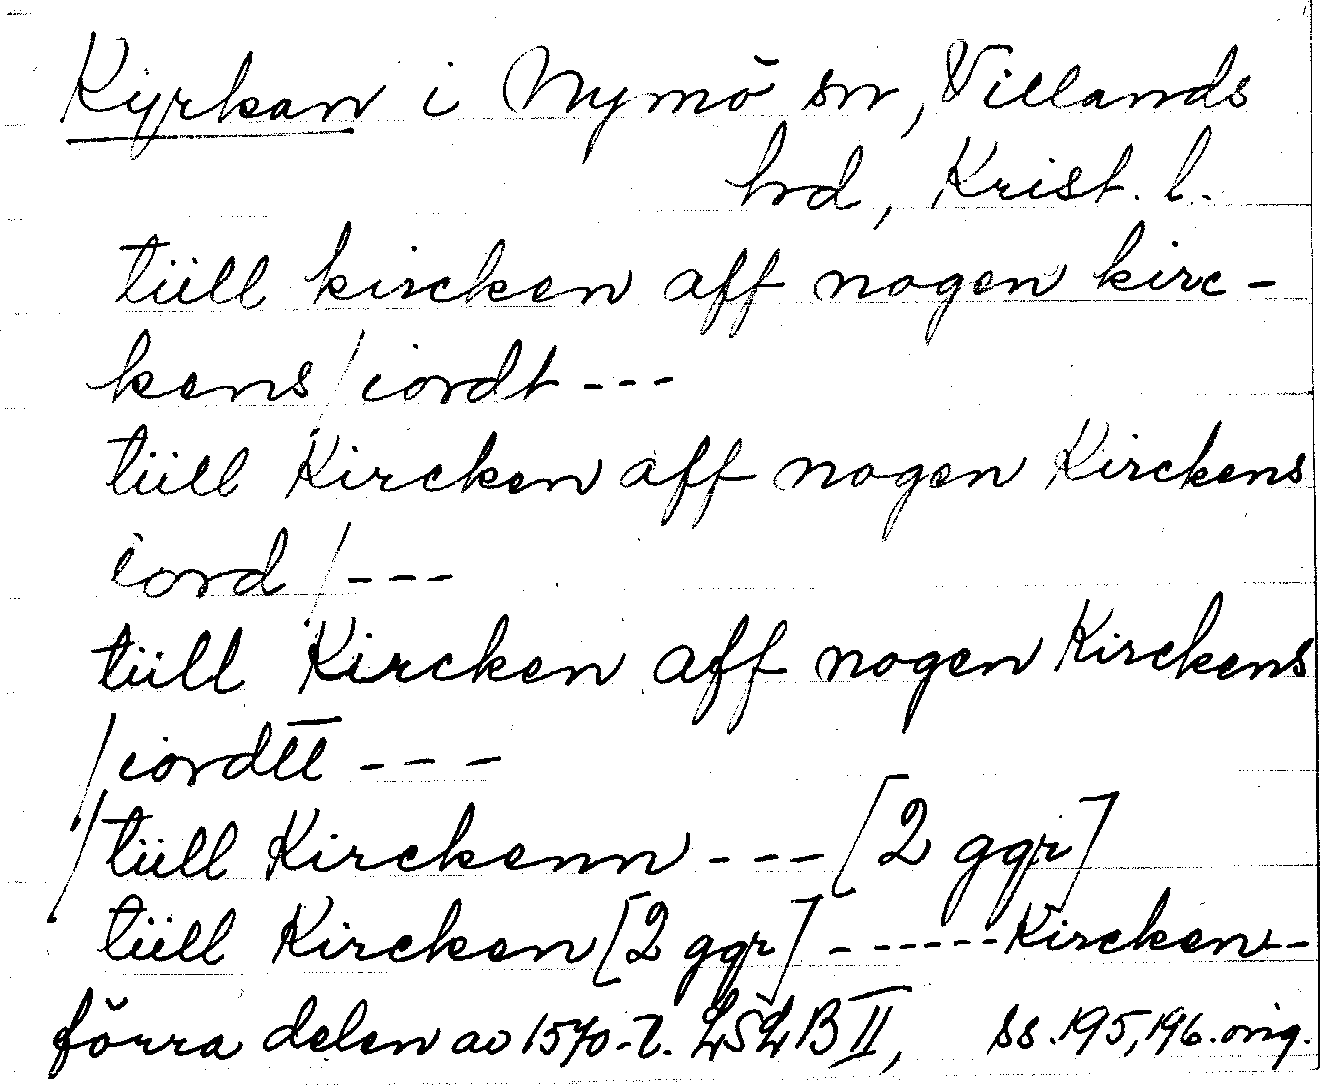 Kyrkan i Nymö sn, Villands
hrd, Krist. l.
tiill kircken aff nogen kirc-
kens / iordt ---
tiill Kircken aff nogen Kirckens
iord / ---
tiill Kircken aff nogen Kirckens
/ iordtt ---
/ tiill Kirckenn --- [2 ggr]
tiill Kircken [2 ggr] ------ Kircken --
förra delen av 1570-t. LSLB II, ss. 195, 196. orig.